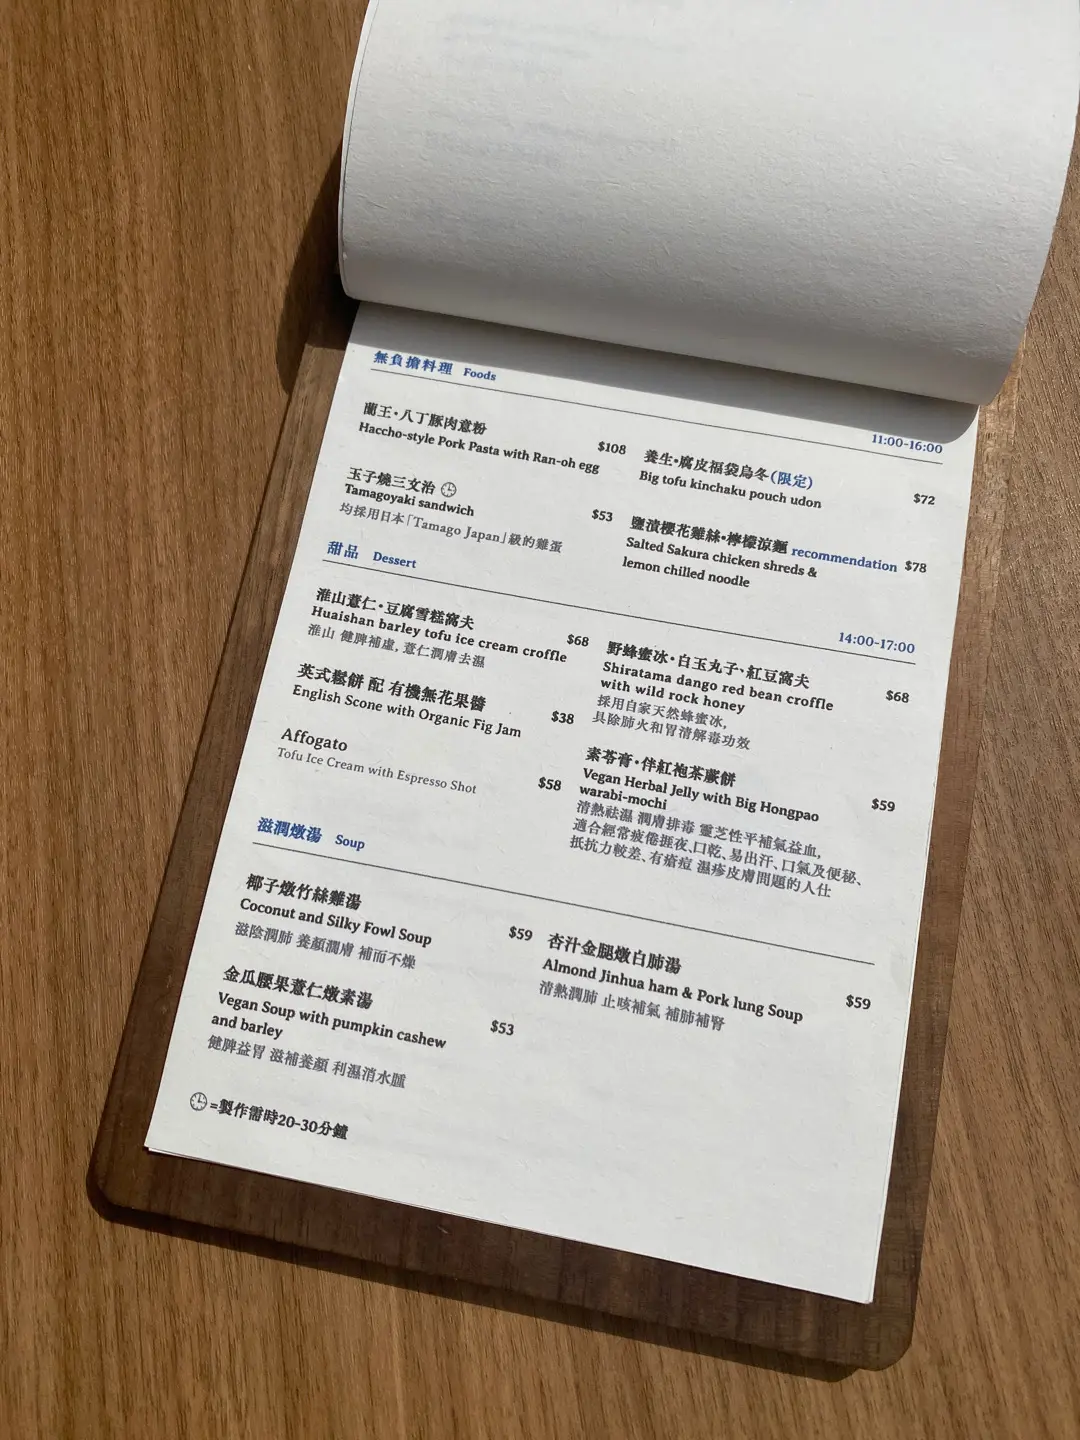 無負擔料理 Foods
11:00-16:00
蘭王・八丁豚肉意粉
Haccho-style Pork Pasta with Ran-oh egg
$108
玉子燒三文治
Tamagoyaki sandwich
$53
均採用日本「Tamago Japan」級的雞蛋
養生・腐皮福袋烏冬(限定)
Big tofu kinchaku pouch udon
$72
鹽漬櫻花雞絲・檸檬涼麵 recommendation $78
Salted Sakura chicken shreds &
lemon chilled noodle
甜品 Dessert
14:00-17:00
淮山薏仁・豆腐雪糕窩夫
Huaishan barley tofu ice cream croffle
$68
淮山 健脾補虛, 薏仁潤膚去濕
英式鬆餅 配 有機無花果醬
English Scone with Organic Fig Jam
$38
Affogato
Tofu Ice Cream with Espresso Shot
$58
野蜂蜜冰・白玉丸子、紅豆窩夫
Shiratama dango red bean croffle
with wild rock honey
$68
採用自家天然蜂蜜冰,
具除肺火和胃清解毒功效
素苓膏・伴紅袍茶蕨餅
Vegan Herbal Jelly with Big Hongpao
warabi-mochi
$59
清熱祛濕 潤膚排毒 靈芝性平補氣益血,
適合經常疲倦捱夜、口乾、易出汗、口氣及便秘、
抵抗力較差、有瘡痘 濕疹皮膚問題的人仕
滋潤燉湯 Soup
椰子燉竹絲雞湯
Coconut and Silky Fowl Soup
$59
滋陰潤肺 養顏潤膚 補而不燥
金瓜腰果薏仁燉素湯
Vegan Soup with pumpkin cashew
and barley
$53
健脾益胃 滋補養顏 利濕消水腫
杏汁金腿燉白肺湯
Almond Jinhua ham & Pork lung Soup
$59
清熱潤肺 止咳補氣 補肺補腎
=製作需時20-30分鐘